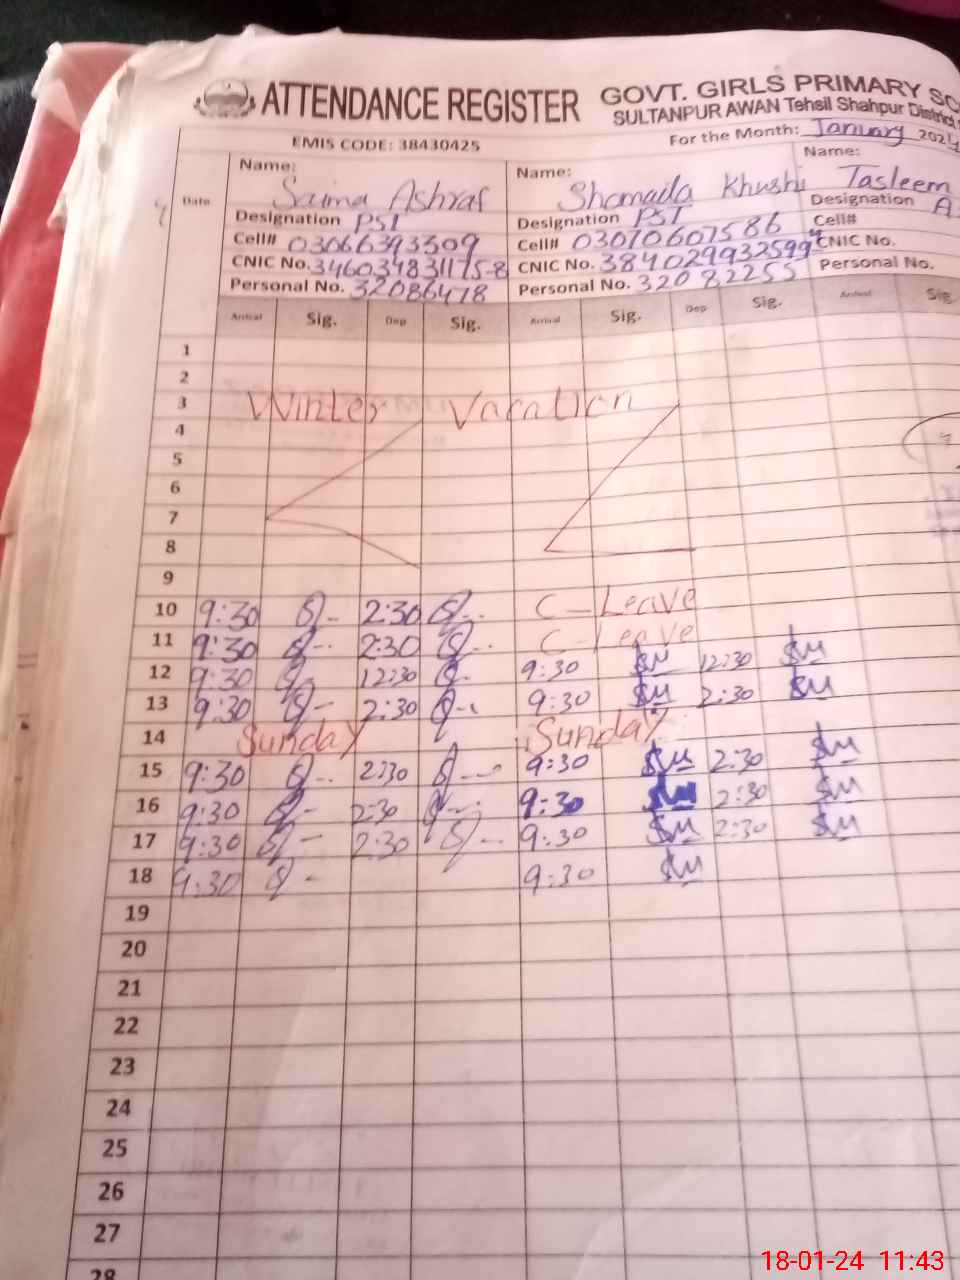 ATTENDANCE REGISTER GOVT. GIRLS PRIMARY SC
SULTANPUR AWAN Tehsil Shahpur District
EMIS CODE: 38430425 For the Month: January 2024
Date Name: Saima Ashraf Name: Shomaila Khushi Name: Tasleem
Designation PST Designation PST Designation A
Cell# 03066393509 Cell# 03070607586 Cell#
CNIC No. 346034831175-8 CNIC No. 3840299325994 CNIC No.
Personal No. 32086478 Personal No. 32082255 Personal No.
Arrival Sig. Dep Sig. Arrival Sig. Dep Sig. Arrival Sig.
1
2
3 Winter Vacation
4
5
6
7
8
9
10 9:30 2:30 C-Leave
11 9:30 2:30 C-Leave
12 9:30 12:30 9:30 12:30
13 9:30 2:30 9:30 2:30
14 Sunday Sunday
15 9:30 2:30 9:30 2:30
16 9:30 2:30 9:30 2:30
17 9:30 2:30 9:30 2:30
18 9:30 9:30
19
20
21
22
23
24
25
26
27
28
18-01-24 11:43